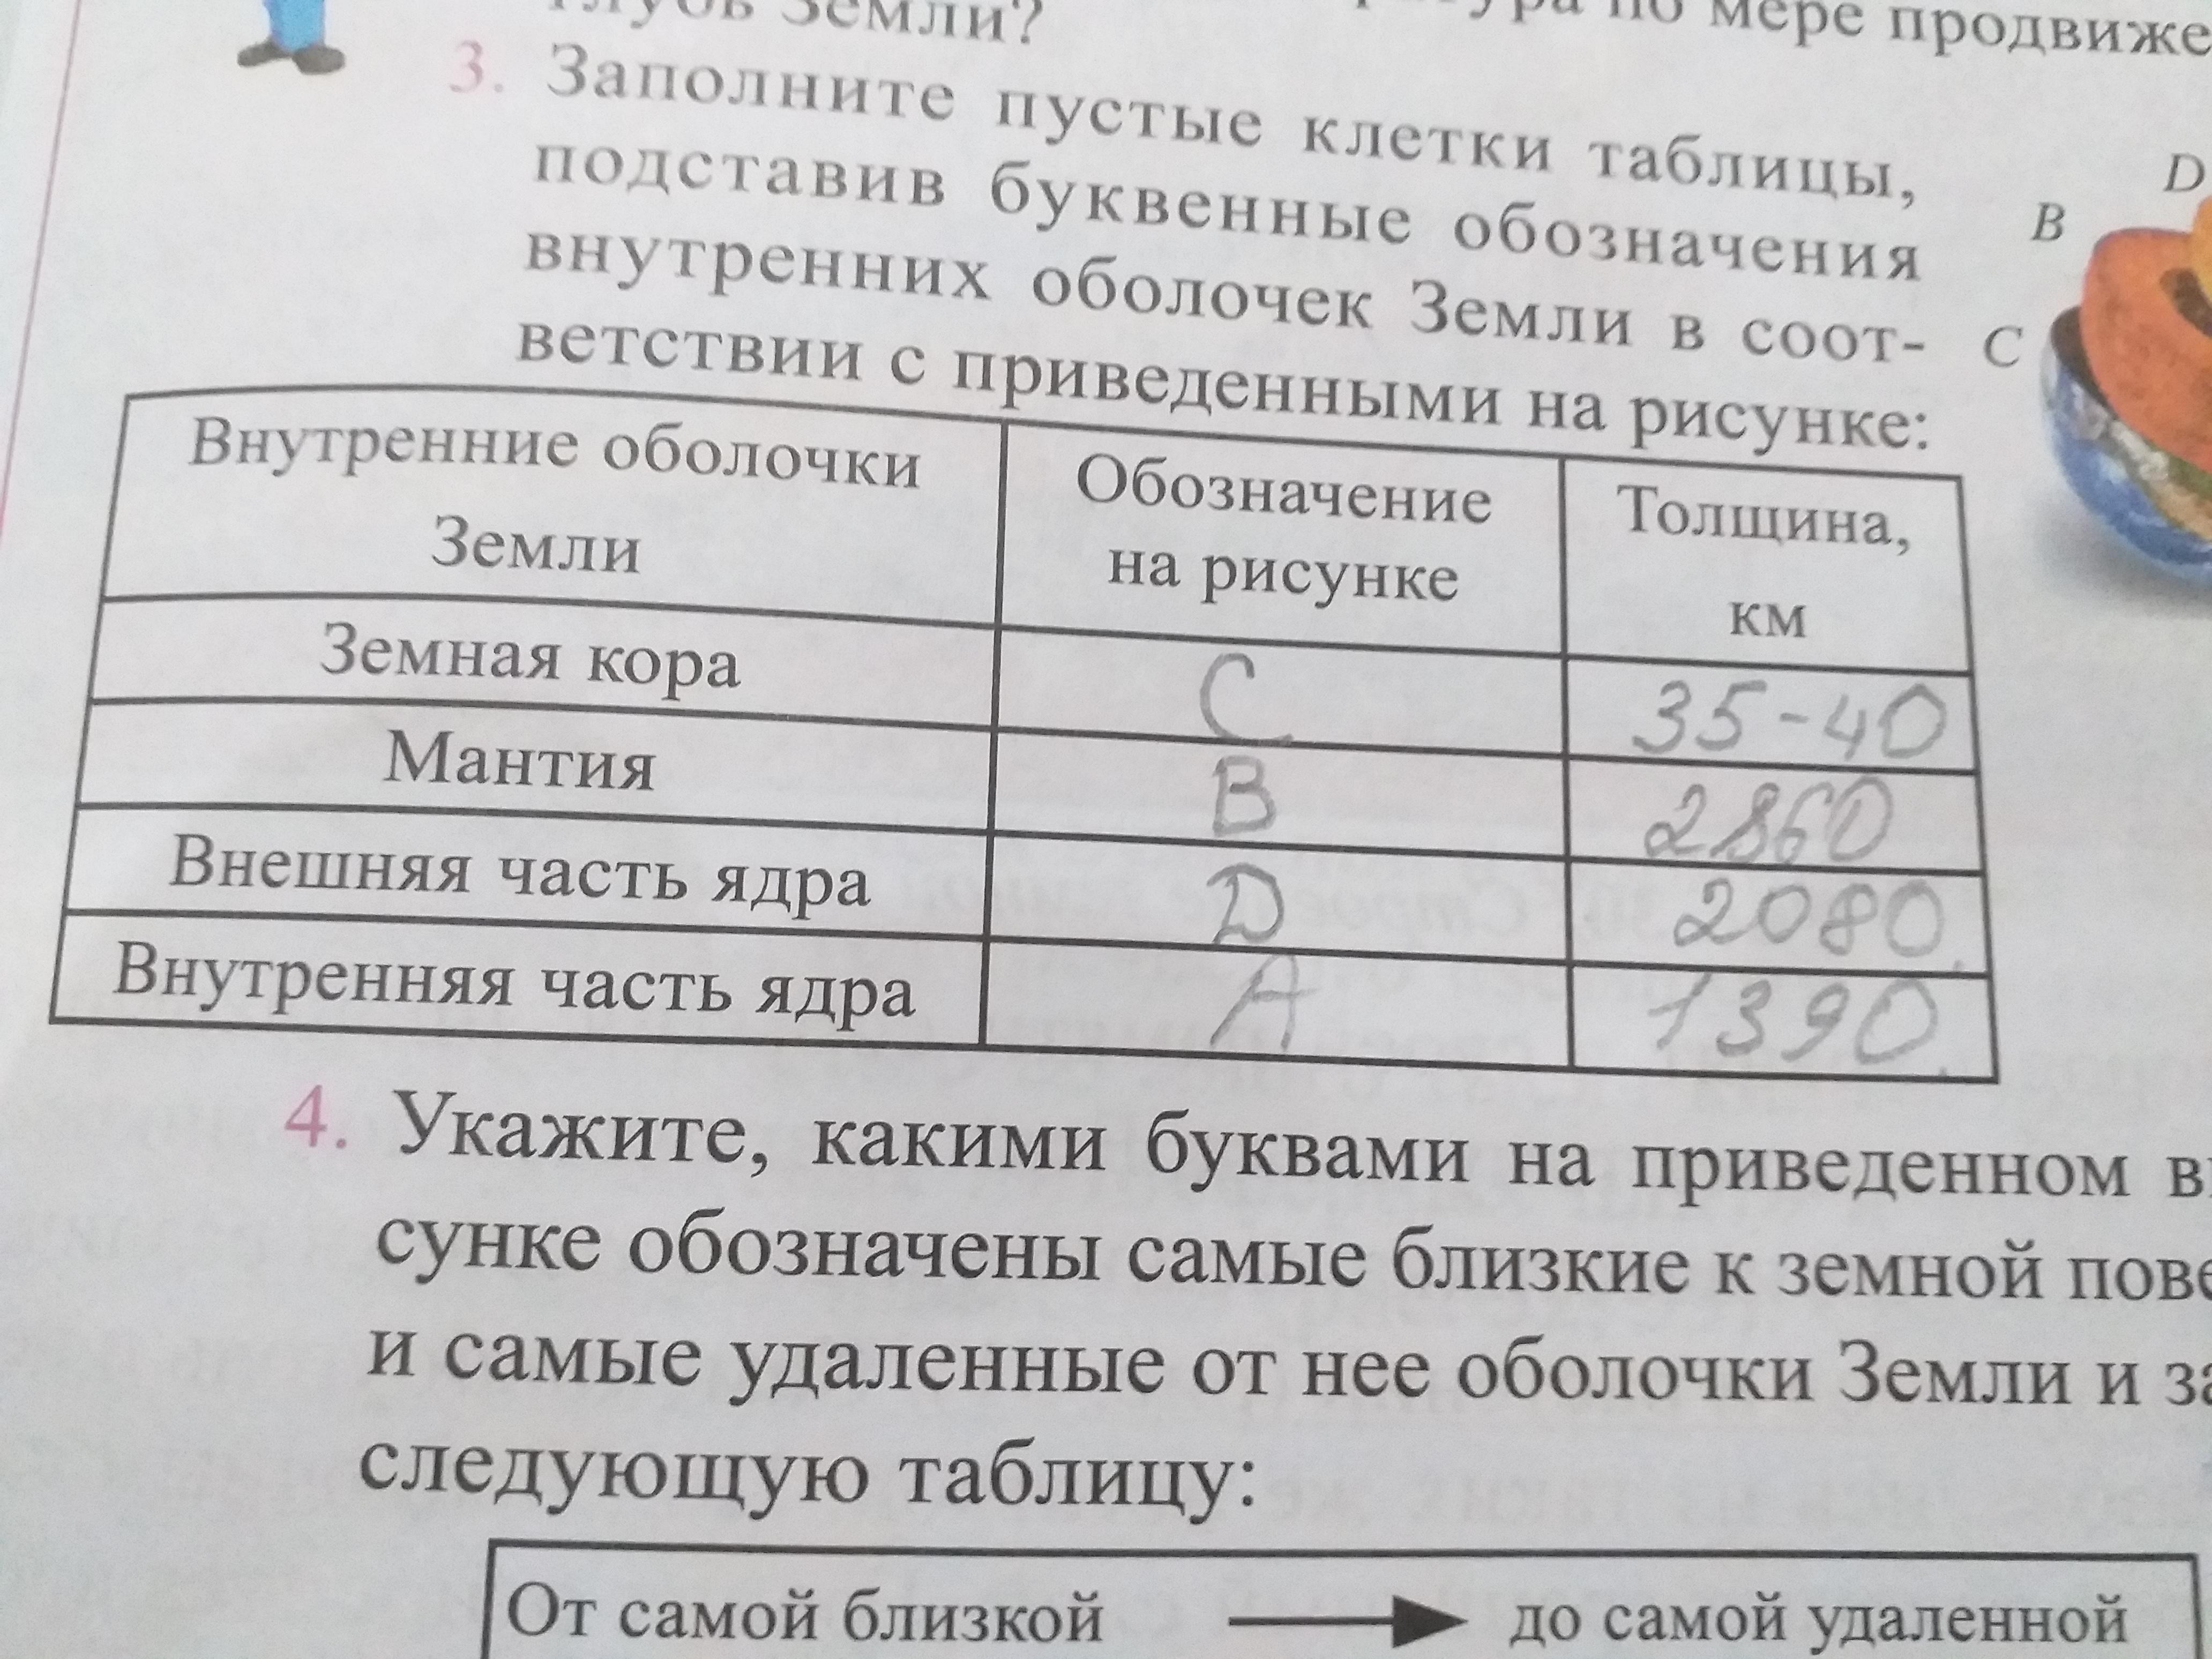 глубь Земли?
по мере продвиже
3. Заполните пустые клетки таблицы,
подставив буквенные обозначения
внутренних оболочек Земли в соот-
ветствии с приведенными на рисунке:
D
B
C
Внутренние оболочки
Земли
Обозначение
на рисунке
Толщина,
км
Земная кора C 35-40
Мантия B 2860
Внешняя часть ядра D 2080
Внутренняя часть ядра A 1390
4. Укажите, какими буквами на приведенном
сунке обозначены самые близкие к земной
и самые удаленные от нее оболочки Земли и
следующую таблицу:
От самой близкой → до самой удаленной